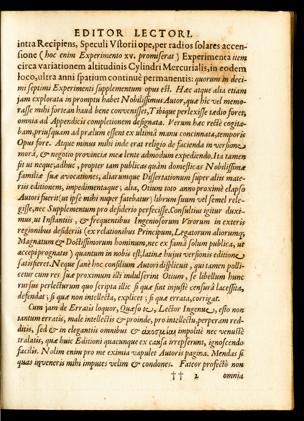 EDITOR LECTORI.
intra Recipiens, Speculi Vstorii ope, per radios solares accen-
sione (hoc enim Experimento xv. promiserat) Experimenta item
circa variationem altitudinis Cylindri Mercurialis, in eodem
loco, ultra anni spatium continuè permanentis: quorum in deci-
mi septimi Experimenti supplementum opus est. Hæc atque alia etiam
jam explorata in promptu habet Nobilissimus Autor, quæ hic vel memo-
rasse mihi fortean haud bene convenisset, Tibique perlexisse tædio foret,
omnia ad Appendicis completionem designata. Verum hæc rectè cogita-
bam, priusquam ad prælum essent ex ultimâ manu concinnata, temporis
Opus fore. Atque minus mihi inde erat religio de facienda in versione
morâ, & negotio provincia mea lente admodum expediendo. Ita tamen
fit ut neque, adhuc, propter tam publicas quàm domesticas Nobilissimæ
familiæ suæ avocationes, aliarumque Dissertationum super aliis mate-
riis editionem, impedimentaque; alia, Otium toto anno proximè elapso
Autori fuerit (ut ipse mihi nuper fatebatur) librum suum vel semel rele-
gisse, nec Supplementum pro desiderio perfecisse. Consultius igitur duxi-
mus, ut Instantiis, & frequentibus Ingeniosorum Virorum in exteris
regionibus desideriis (ex relationibus Principum, Legatorum aliorumq;
Magnatum & Doctissimorum hominum, nec ex famâ solum publica, ut
accepi prognatis) quantum in nobis est, latinâ hujus versionis editione
satisfieret. Neque sanè hoc consilium Autori displicuit, qui tamen polli-
cetur cum res suæ proximum illi indulserint Otium, se libellum hunc
rursus perlecturum quo scripta illic si quæ sint injustè censurâ lacessita,
defendat; si quæ non intellecta, explicet; si quæ errata, corrigat.
Cum jam de Erratis loquor, Quæso te, Lector Ingenue, esto non
tantum erratis, male intellectis & proinde, pro intellectu, perperam red-
ditis, sed & in elegantiis omnibus & impolitè nec venustè
tralatis, quæ huic Editioni quacunque ex causa irrepserunt, ignoscendo
facilis. Nolim enim pro me eximia vapulet Autoris pagina. Mendas si
quas inveneris mihi imputes velim & condones. Fateor profectò non
†† 2 omnia